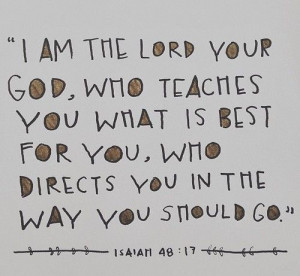 "I AM THE LORD YOUR
GOD, WHO TEACHES
YOU WHAT IS BEST
FOR YOU, WHO
DIRECTS YOU IN THE
WAY YOU SHOULD GO."
ISAIAH 48:17